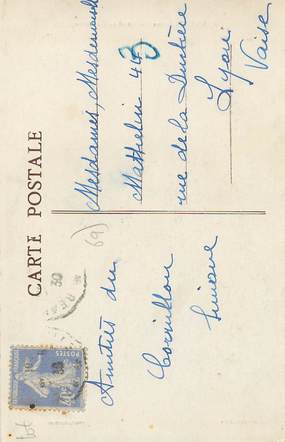 CARTE POSTALE
(69)
Amitiés du
Mesdames, Mesdemoiselles
Mathelin 44
3
rue de la
Lyon
Vaise
30
POSTES
lot